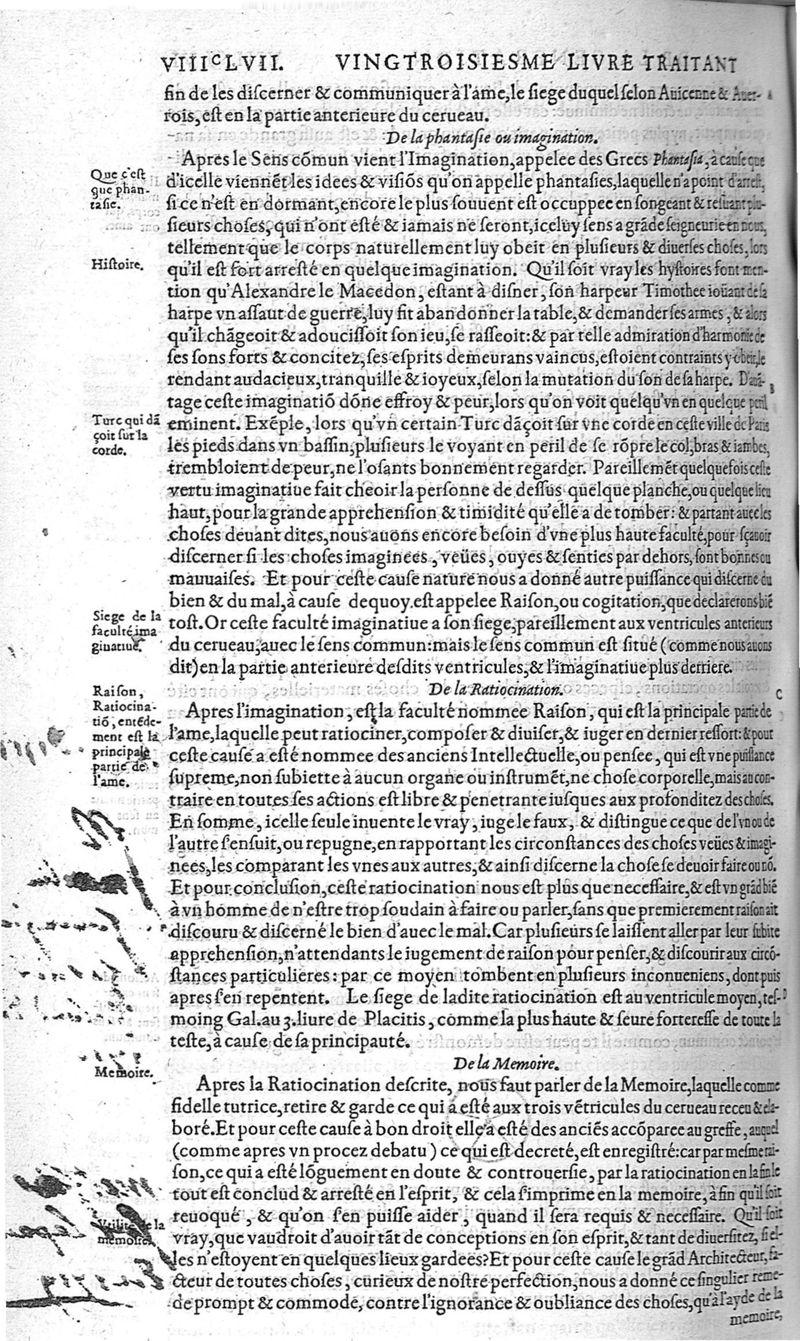 VIIIᶜLVII. VINGTROISIESME LIVRE TRAITANT
fin de les diſcerner & communiquer à l'ame, le ſiege duquel ſelon Auicenne & Auer-
rois, eſt en la partie anterieure du cerueau.
De la phantaſie ou imagination.
Apres le Sens cõmun vient l'Imagination, appelee des Grecs Phantaſia, à cauſe que
Que c'eſt
que phan-
taſie.
d'icelle viennẽt les idees & viſiõs qu'on appelle phantaſies, laquelle n'a point d'arreſt,
ſi ce n'eſt en dormant, encore le plus ſouuent eſt occuppee en ſongeant & reſuant plu-
ſieurs choſes, qui n'ont eſté & iamais ne ſeront, iceluy ſens a grãde ſeigneurie en nous,
tellement que le corps naturellement luy obeit en pluſieurs & diuerſes choſes, lors
Hiſtoire.
qu'il eſt fort arreſté en quelque imagination. Qu'il ſoit vray les hyſtoires font men-
tion qu'Alexandre le Macedon, eſtant à diſner, ſon harpeur Timothee ioüant de ſa
harpe vn aſſaut de guerre, luy fit abandonner la table, & demander ſes armes, & alors
qu'il chãgeoit & adouciſſoit ſon ieu, ſe raſſeoit: & par telle admiration d'harmonie de
ſes ſons forts & concitez, ſes eſprits demeurans vaincus, eſtoient contraints y obeir, le
rendant audacieux, tranquille & ioyeux, ſelon la mutation du ſon de ſa harpe. D'auã-
tage ceſte imaginatiõ dõne effroy & peur, lors qu'on voit quelqu'vn en quelque peril
Turc qui dã
çoit ſur la
corde.
eminent. Exẽple, lors qu'vn certain Turc dãçoit ſur vne corde en ceſte ville de Paris
les pieds dans vn baſſin, pluſieurs le voyant en peril de ſe rõpre le col, bras & iambes,
trembloient de peur, ne l'oſants bonnement regarder. Pareillemẽt quelquefois ceſte
vertu imaginatiue fait cheoir la perſonne de deſſus quelque planche, ou quelque lieu
haut, pour la grande apprehenſion & timidité qu'elle a de tomber: & partant auec les
choſes deuant dites, nous auons encore beſoin d'vne plus haute faculté, pour ſçauoir
diſcerner ſi les choſes imaginees, veües, ouyes & ſenties par dehors, ſont bonnes ou
mauuaiſes. Et pour ceſte cauſe nature nous a donné autre puiſſance qui diſcerne du
bien & du mal, à cauſe dequoy eſt appelee Raiſon, ou cogitation, que declarerons biẽ
Siege de la
faculté ima
ginatiue.
toſt. Or ceſte faculté imaginatiue a ſon ſiege, pareillement aux ventricules anterieurs
du cerueau, auec le ſens commun: mais le ſens commun eſt ſitué (comme nous auons
dit) en la partie anterieure deſdits ventricules, & l'imaginatiue plus derriere.
De la Ratiocination.
C
Raiſon,
Ratiocina-
tiõ, entẽde-
ment eſt la
principale
partie de
l'ame.
Apres l'imagination, eſt la faculté nommee Raiſon, qui eſt la principale partie de
l'ame, laquelle peut ratiociner, compoſer & diuiſer, & iuger en dernier reſſort: & pour
ceſte cauſe a eſté nommee des anciens Intellectuelle, ou penſee, qui eſt vne puiſſance
ſupreme, non ſubiette à aucun organe ou inſtrumẽt, ne choſe corporelle, mais au con-
traire en toutes ſes actions eſt libre & penetrante iuſques aux profonditez des choſes.
En ſomme, icelle ſeule inuente le vray, iuge le faux, & diſtingue ce que de l'vn ou de
l'autre ſ'enſuit, ou repugne, en rapportant les circonſtances des choſes veües & imagi-
nees, les comparant les vnes aux autres, & ainſi diſcerne la choſe ſe deuoir faire ou nõ.
Et pour concluſion, ceſte ratiocination nous eſt plus que neceſſaire, & eſt vn grãd biẽ
à vn homme de n'eſtre trop ſoudain à faire ou parler, ſans que premierement raiſon ait
diſcouru & diſcerné le bien d'auec le mal. Car pluſieurs ſe laiſſent aller par leur ſubite
apprehenſion, n'attendants le iugement de raiſon pour penſer, & diſcourir aux circõ-
ſtances particulieres: par ce moyen tombent en pluſieurs inconueniens, dont puis
apres ſ'en repentent. Le ſiege de ladite ratiocination eſt au ventricule moyen, teſ-
moing Gal. au 3. liure de Placitis, comme la plus haute & ſeure fortereſſe de toute la
teſte, à cauſe de ſa principauté.
De la Memoire.
Memoire.
Apres la Ratiocination deſcrite, nous faut parler de la Memoire, laquelle comme
fidelle tutrice, retire & garde ce qui a eſté aux trois vẽtricules du cerueau receu & ela-
boré. Et pour ceſte cauſe à bon droit elle a eſté des anciẽs accõparee au greffe, auquel
(comme apres vn procez debatu) ce qui eſt decreté, eſt en regiſtré: car par meſme rai-
ſon, ce qui a eſté lõguement en doute & controuerſie, par la ratiocination en la fin le
tout eſt conclud & arreſté en l'eſprit, & cela ſ'imprime en la memoire, à fin qu'il ſoit
reuoqué, & qu'on ſ'en puiſſe aider, quand il ſera requis & neceſſaire. Qu'il ſoit
Vtilité de la
memoire.
vray, que vaudroit d'auoir tãt de conceptions en ſon eſprit, & tant de diuerſitez, ſi el-
les n'eſtoyent en quelques lieux gardees? Et pour ceſte cauſe le grãd Architecteur, fa-
cteur de toutes choſes, curieux de noſtre perfection, nous a donné ce ſingulier reme-
de prompt & commode, contre l'ignorance & oubliance des choſes, qu'à l'ayde de la
memoire,